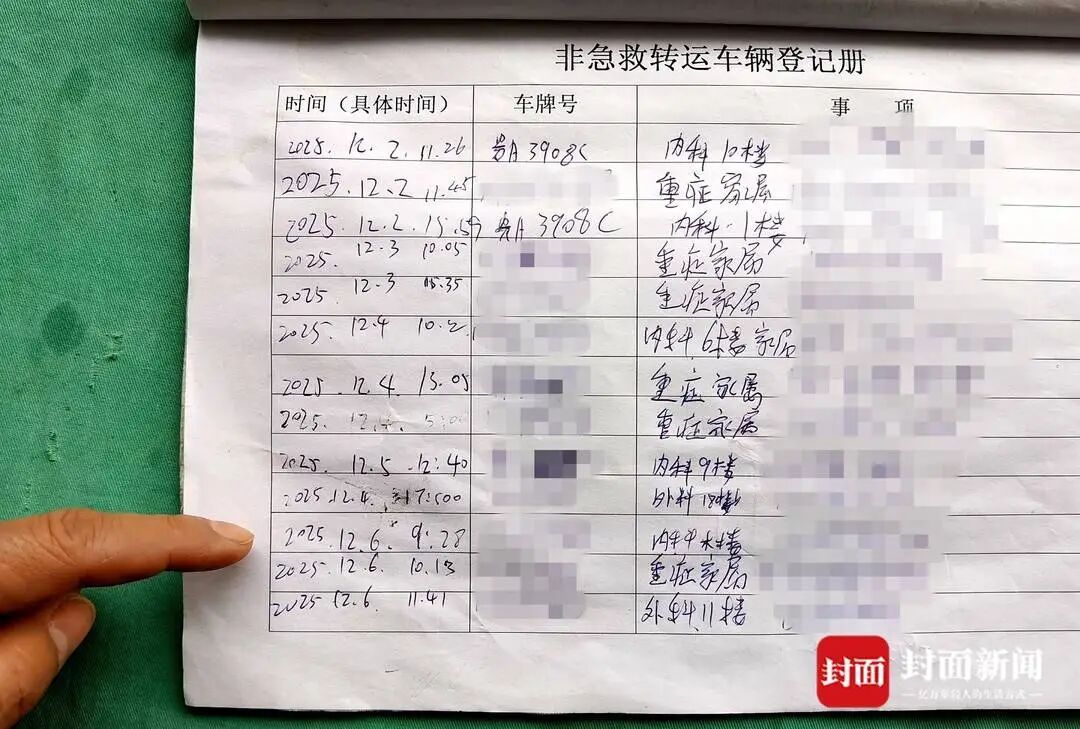 非急救转运车辆登记册
时间（具体时间） 车牌号 事 项
2025. 12. 2. 11.26 贵A 3908C 内科 10楼
2025.12.2 11.45 重症家属
2025. 12.2. 15.59 贵A 3908C 内科. 1楼
2025. 12.3 10.05 重症家属
2025 12.3 15.35 重症家属
2025. 12.4 10.2 内科.6楼家属
2025. 12.4. 13.05 重症家属
2025. 重症家属
2025. 12.5 12:40 内科9楼
2025.12.4. 17:500 外科18楼
2025.12.6. 9:28 内科 楼
2025.12.6. 10.13 重症家属
2025 12.6. 11.41 外科.11楼
封面 封面新闻
亿万年轻人的生活方式